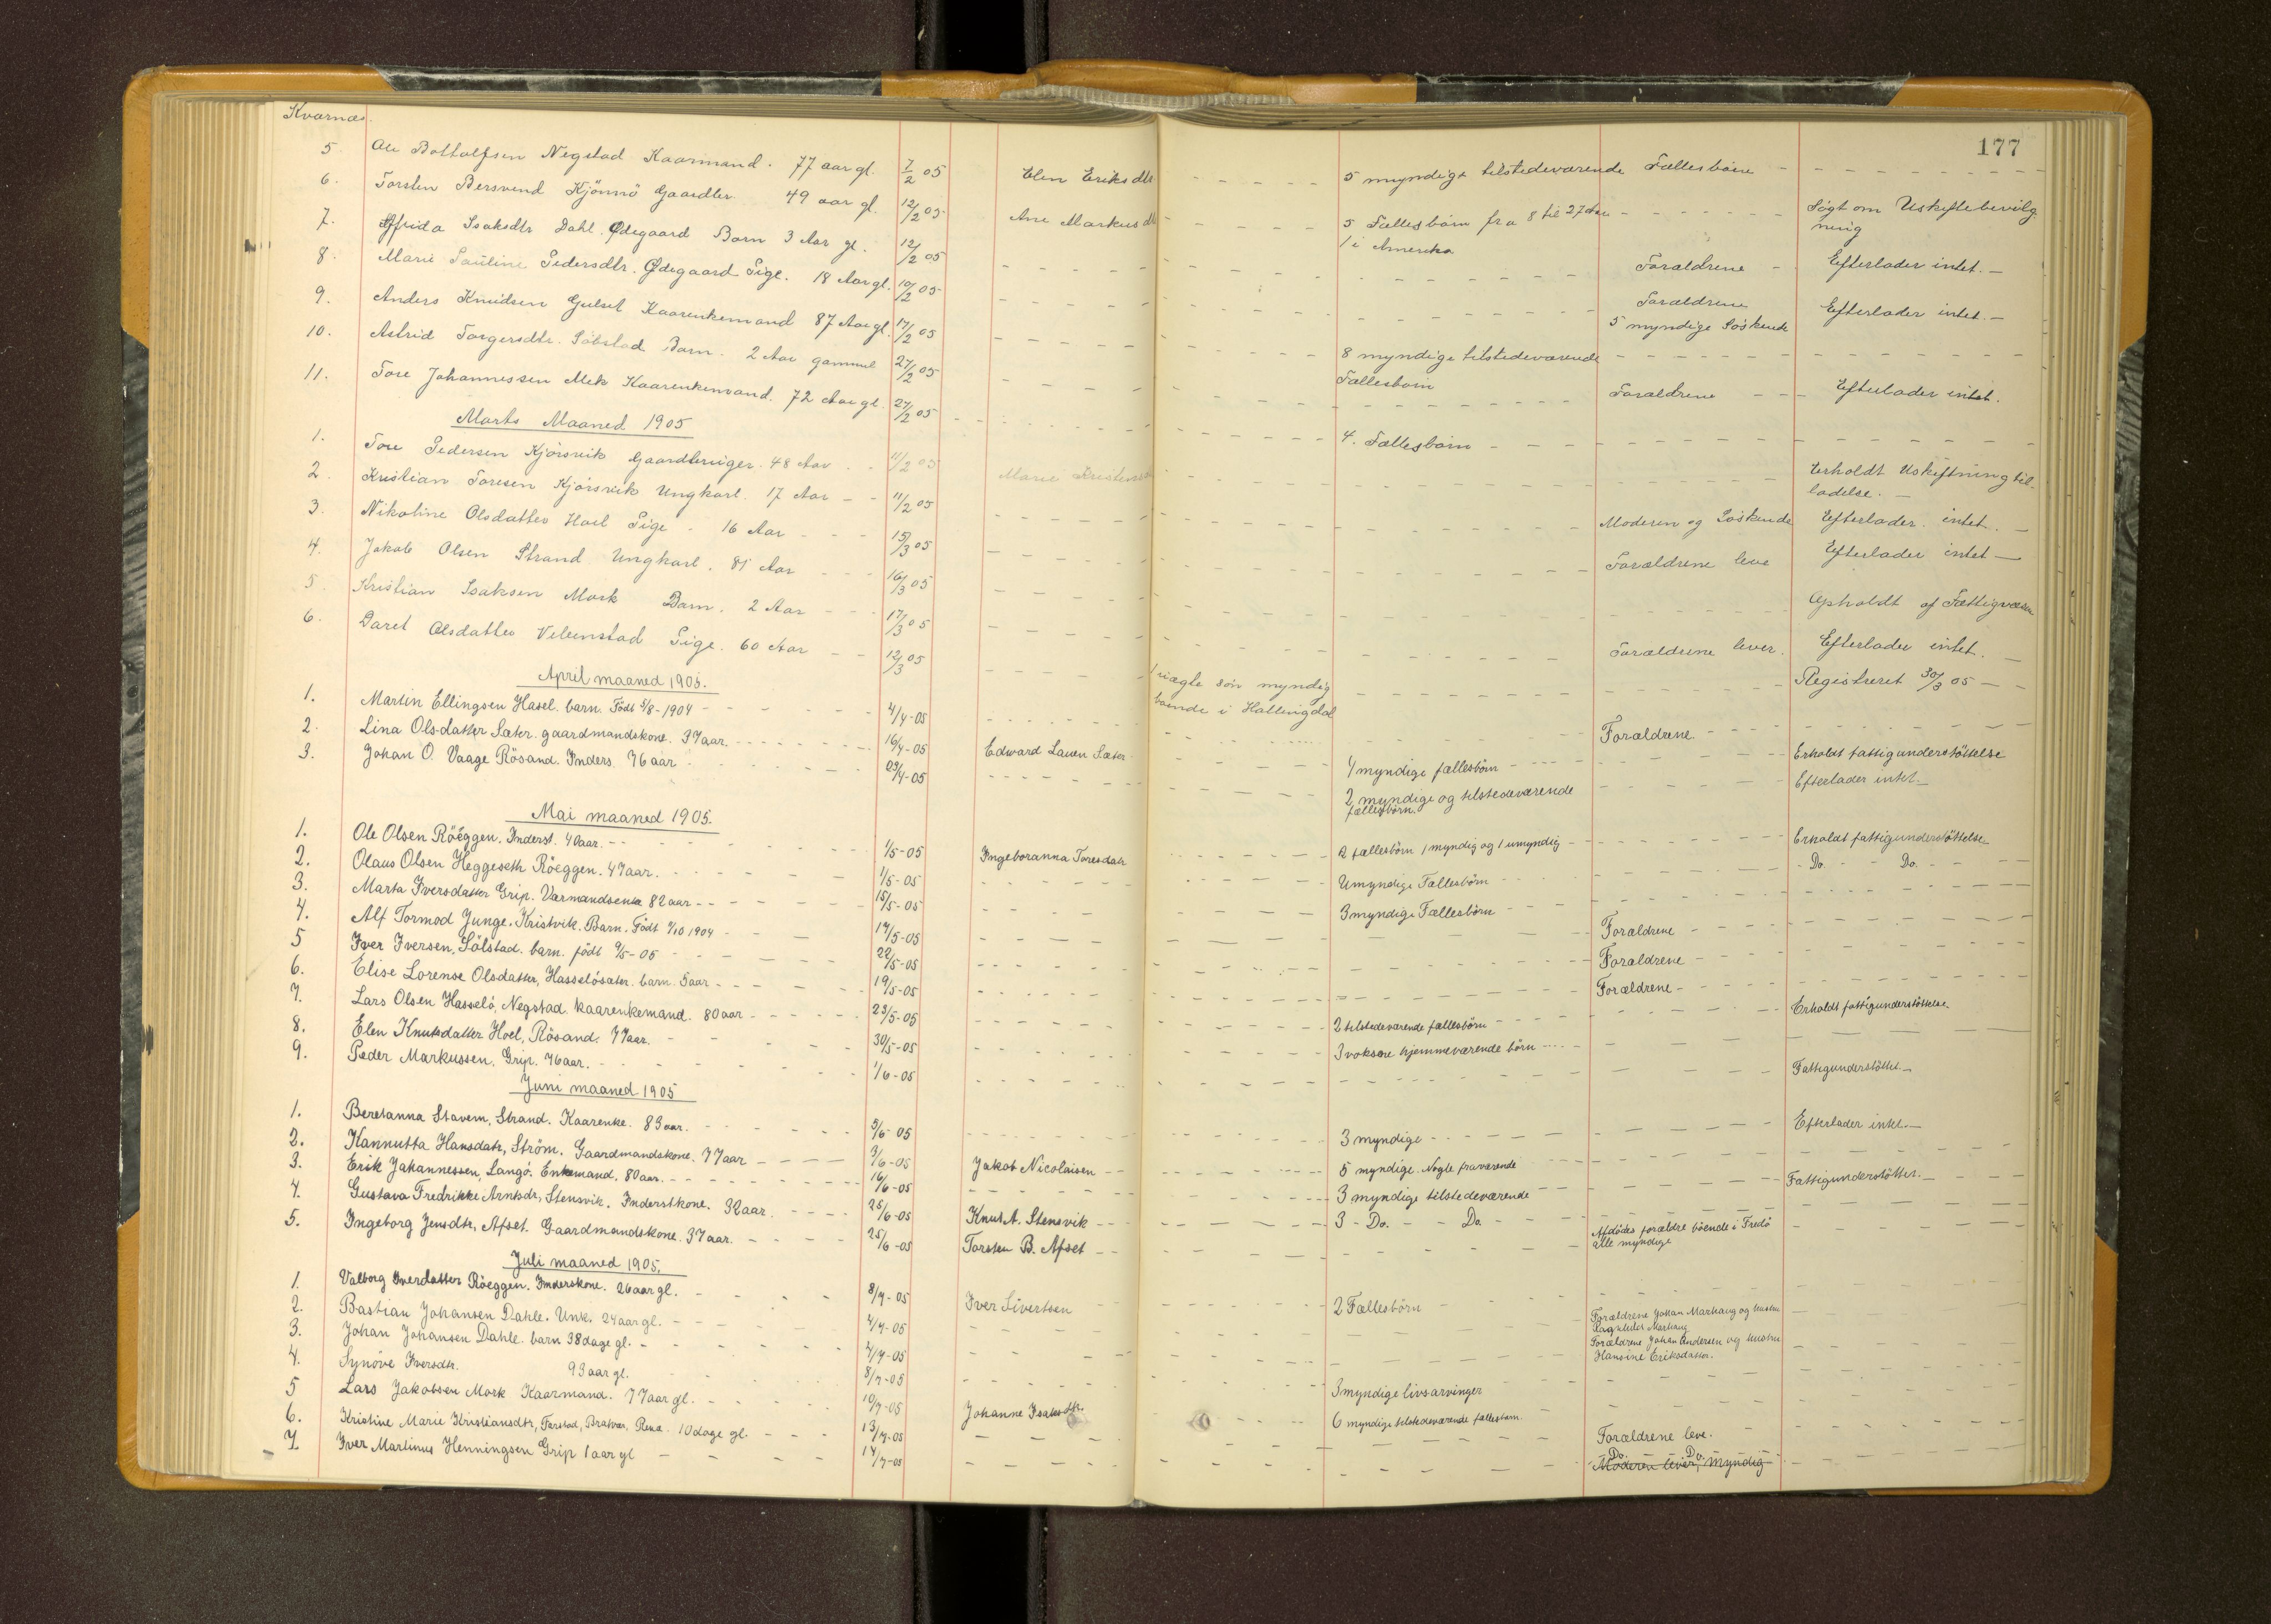 Kværnæs.
177
5. Ole Bottolfsen Negstad Kaarmand. 77 aar gl. 7/2 05 Elen Eriksdtr 5 myndige tilstedeværende Fællesbörn
6. Torsten Bersvend Kjönnö Gaardbr 49 aar gl. 12/2 05 Ane Markusdtr 5 Fællesbörn fra 8 til 27 Aar Sögt om Uskiftebevilg
1 i Amerika ning
7. Isaksdtr Dahl. Ödegaard Barn 3 Aar gl. 12/2 05 Forældrene Efterlader intet.
8. Marie Pauline Pedersdtr. Ödegaard Pige. 18 Aar gl. 10/2 05 Forældrene Efterlader intet.
5 myndige Söskende
9. Anders Knudsen Gulset Kaarenkemand 87 Aar gl. 17/2 05 8 myndige tilstedeværende
Fællesbørn
10. Astrid Torgersdtr. Sölstad Barn. 2 Aar gammel 27/2 05 Forældrene Efterlader intet.
11. Tore Johannessen Mek Kaarenkemand. 72 Aar gl. 27/2 05 4. Fællesbörn
Marts Maaned 1905
1. Tore Pedersen Kjörsvik Gaardbruger. 48 Aar 11/2 05 Marie Erholdt Uskiftningtil-
ladelse.
2. Kristian Toresen Kjörsvik Ungkarl. 17 Aar 11/2 05 Moderen og Söskende Efterlader intet.
3. Nikoline Olsdatter Hoel Pige 16 Aar 15/3 05 Forældrene leve Efterlader intet
4. Jakob Olsen Strand Ungkarl. 81 Aar 16/3 05 Opholdt af Fattigvæsen
5. Kristian Isaksen Mork Barn. 2 Aar 17/3 05 Forældrene lever. Efterlader intet.
6. Daret Olsdatter Pige. 60 Aar 12/3 05 1 uægte sön myndig Registreret 30/3 05
boende i Hallingdal
April maaned 1905.
1. Martin Ellingsen Hasel. barn. Födt 5/8-1904 4/4-05 Forældrene.
2. Lina Olsdatter Sæter. gaardmandskone. 37 aar. 16/4-05 Edward Sæter 4 myndige fællesbörn Erholdt fattigunderstöttelse
3. Johan O. Vaage Rösand. Inders. 76 aar 29/4-05 2 myndige og tilstedeværende Efterlader intet
fællesbörn.
Mai maaned 1905.
1. Ole Olsen Röeggen. Inderst. 40 aar. 1/5-05 Ingeboranna Toresdatr 2 fællesbörn 1 myndig og 1 umyndig Erholdt fattigunderstöttelse
2. Olaus Olsen Heggeseth Röeggen. 47 aar. 1/5-05 Umyndige Fællesbörn Do. Do.
3. Marta Iversdatter Grip. Varmandsenke 82 aar 15/5-05 3 myndige Fællesbörn
4. Alf Tormod Junge. Kristvik. Barn. Födt 1904 17/5-05 Forældrene
5 Iver Iversen, Sölstad. barn. födt 9/5-05 22/5-05 Forældrene
6. Elise Lorense Olsdatter, Hasselösæter. barn. 5 aar 19/5-05 Forældrene
7. Lars Olsen Hasselö, Negstad. kaarenkemand. 80 aar 23/5-05 2 tilstedeværende fællesbörn Erholdt fattigunderstöttelse
8. Elen Knutsdatter Hoel, Rösand. 77 aar. 30/5-05 3 voksne hjemmeværende börn
9. Peder Markussen, Grip. 76 aar. 1/6-05 Fattigunderstöttet.
Juni maaned 1905
1. Beretanna Stavem, Strand. Kaarenke. 83 aar. 3/6-05 3 myndige Efterlader intet.
2. Kannutta Hansdatr, Ström. Gaardmandskone. 77 aar 3/6-05 Jakob Nicolaisen 5 myndige. Nogle fraværende
3. Erik Johannessen, Langö. Enkemand. 80 aar. 16/6-05 3 myndige tilstedeværende Fattigunderstöttet.
4. Gustava Fredrikke Arntsdr, Stensvik. Inderstkone. 32 aar. 25/6-05 Knut A. Stensvik 3 Do. Do.
5. Ingeborg Jensdtr, Afset. Gaardmandskone. 37 aar. 25/6-05 Torsten B. Afset Afdødes forældre böende i Fredö
alle myndige
Juli maaned 1905.
1. Valborg Iverdatter Röeggen. Inderskone. 26 aar gl. 8/7-05 Iver Sivertsen 2 Fællesbörn
2. Bastian Johansen Dahle. Unk. 24 aar gl. 4/7-05 Forældrene Johan Marhaug og hustru
Marhaug
3. Johan Johansen Dahle. barn 38 dage gl. 4/7-05 Forældrene Johan Andersen og hustru
Hansine Eriksdatter.
4. Synöve Iversdtr. 93 aar gl. 8/7-05 3 myndige livsarvinger
5 Lars Jakobsen Mork Kaarmand. 77 aar gl. 10/7-05 Johanne Isaksdtr. 6 myndige tilstedeværende fællesbarn.
6. Kristine Marie Kristiansdtr, Farstad, Bratvær, 10 dage gl. 13/7-05 Forældrene leve.
7. Iver Martinus Henningsen Grip 1 aar gl 14/7-05 Do. Do.
Moderen lever, myndig